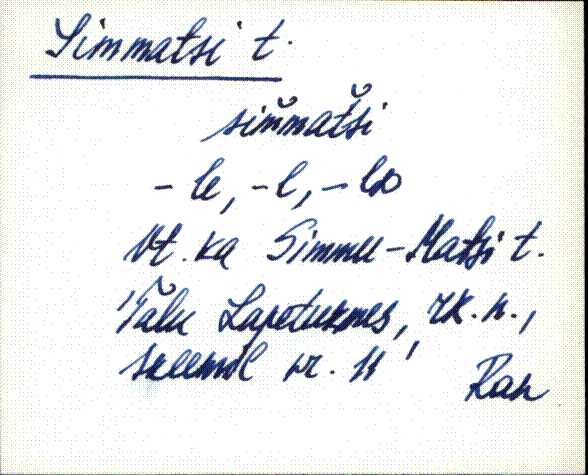 Simmatsi t.
sim̆mat̆si
- le, - l, - lo
Vt. ka Simmu-Matsi t.
"Talu Lapetukmes, rk. n.,
skeemil nr. 11"
Ran